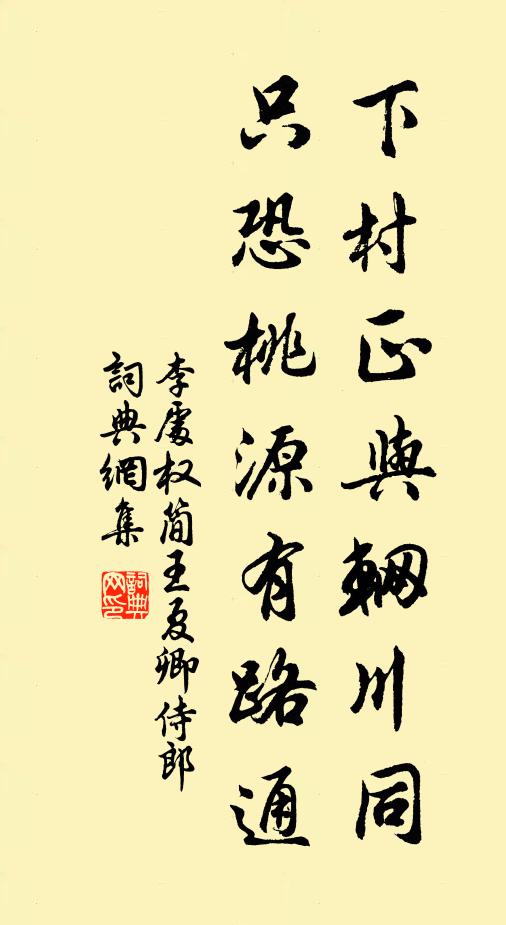 下村正與輞川同
只恐桃源有路通
李處权简王夏卿侍郎
詞典網集
詞典网印